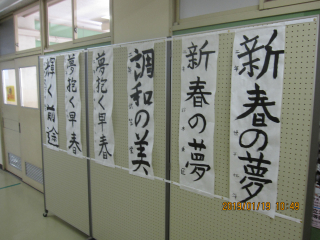 新春の夢
新春の夢
調和の美
夢抱く早春
夢抱く早春
輝く前途